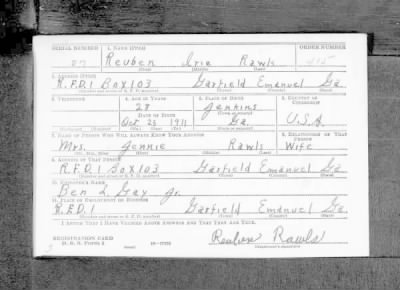 SERIAL NUMBER 1. NAME (Print) ORDER NUMBER
87 Reuben Irie Rawls 415
(First) (Middle) (Last)
2. ADDRESS (Print)
R.F.D.1 Box 103 Garfield Emanuel Ga.
(Number and street or R. F. D. number) (Town) (County) (State)
3. TELEPHONE 4. AGE IN YEARS 5. PLACE OF BIRTH 6. COUNTRY OF CITIZENSHIP
28 Jenkins
DATE OF BIRTH
Oct 23 1911 Ga. U.S.A.
(Mo.) (Day) (Yr.) (State or country)
7. NAME OF PERSON WHO WILL ALWAYS KNOW YOUR ADDRESS 8. RELATIONSHIP OF THAT PERSON
Mrs. Jennie Rawls Wife
(Mr., Mrs., Miss) (First) (Middle) (Last)
9. ADDRESS OF THAT PERSON
R.F.D.1 Box 103 Garfield Emanuel Ga.
(Number and street or R. F. D. number) (Town) (County) (State)
10. EMPLOYER'S NAME
Ben L. Gay Jr.
11. PLACE OF EMPLOYMENT OR BUSINESS
R.F.D.1 Garfield Emanuel Ga.
(Number and street or R. F. D. number) (Town) (County) (State)
I AFFIRM THAT I HAVE VERIFIED ABOVE ANSWERS AND THAT THEY ARE TRUE.
REGISTRATION CARD
D. S. S. Form 1 16-17105 Reuben Rawls
(Registrant's signature)